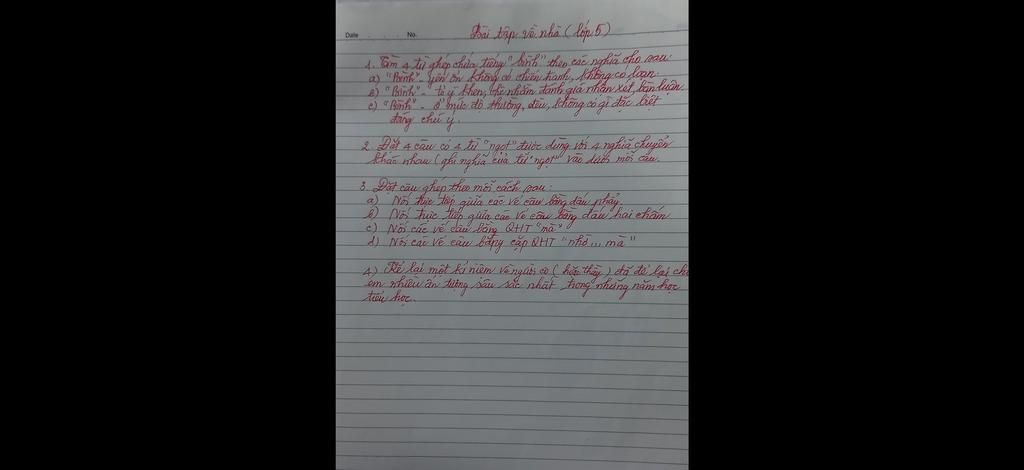 Date No.
Bài tập về nhà (lớp 5)
1. Tìm 4 từ ghép chứa tiếng "bình" theo các nghĩa cho sau:
a) "Bình" - yên ổn không có chiến tranh, không có loạn.
b) "Bình" - tỏ ý khen, chê nhằm đánh giá nhận xét, bàn luận
c) "Bình" - ở mức độ thường, đều, không có gì đặc biệt
đáng chú ý.
2. Đặt 4 câu có 4 từ "ngọt" được dùng với 4 nghĩa chuyển
khác nhau (ghi nghĩa của từ "ngọt" vào dưới mỗi câu.
3. Đặt câu ghép theo mỗi cách sau:
a) Nối trực tiếp giữa các vế câu bằng dấu phẩy
b) Nối trực tiếp giữa các vế câu bằng dấu hai chấm
c) Nối các vế câu bằng QHT "mà"
d) Nối các vế câu bằng cặp QHT "nhờ... mà"
4) Kể lại một kỉ niệm về người cô (hoặc thầy) đã để lại cho
em nhiều ấn tượng sâu sắc nhất trong những năm học
tiểu học.